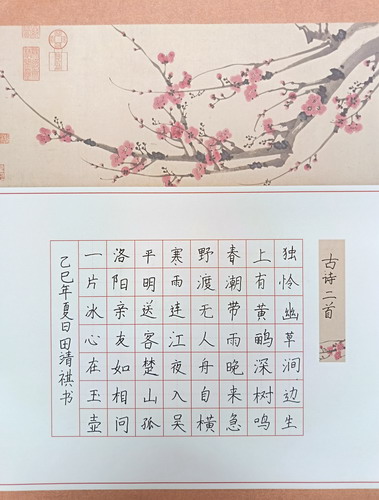 古诗二首
独怜幽草涧边生
上有黄鹂深树鸣
春潮带雨晚来急
野渡无人舟自横
寒雨连江夜入吴
平明送客楚山孤
洛阳亲友如相问
一片冰心在玉壶
乙巳年夏日田靖祺书